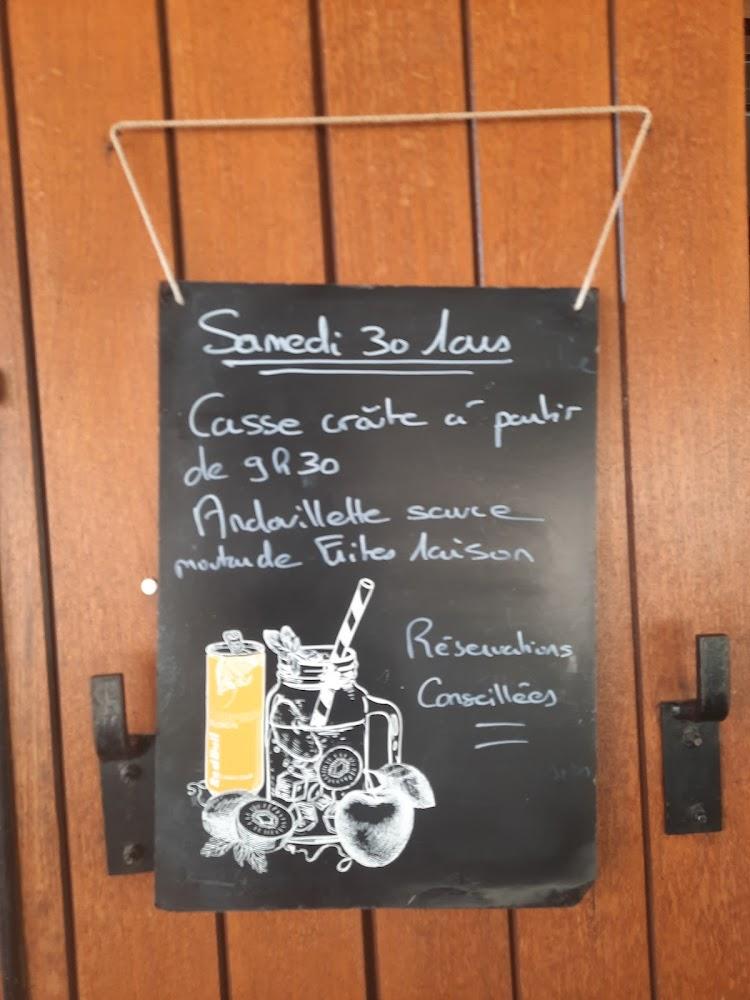 Samedi 30 Mars
Casse croûte à partir
de 9h30
Andouillette sauce
moutarde Frites Maison
Réservations
Conseillées
Red Bull